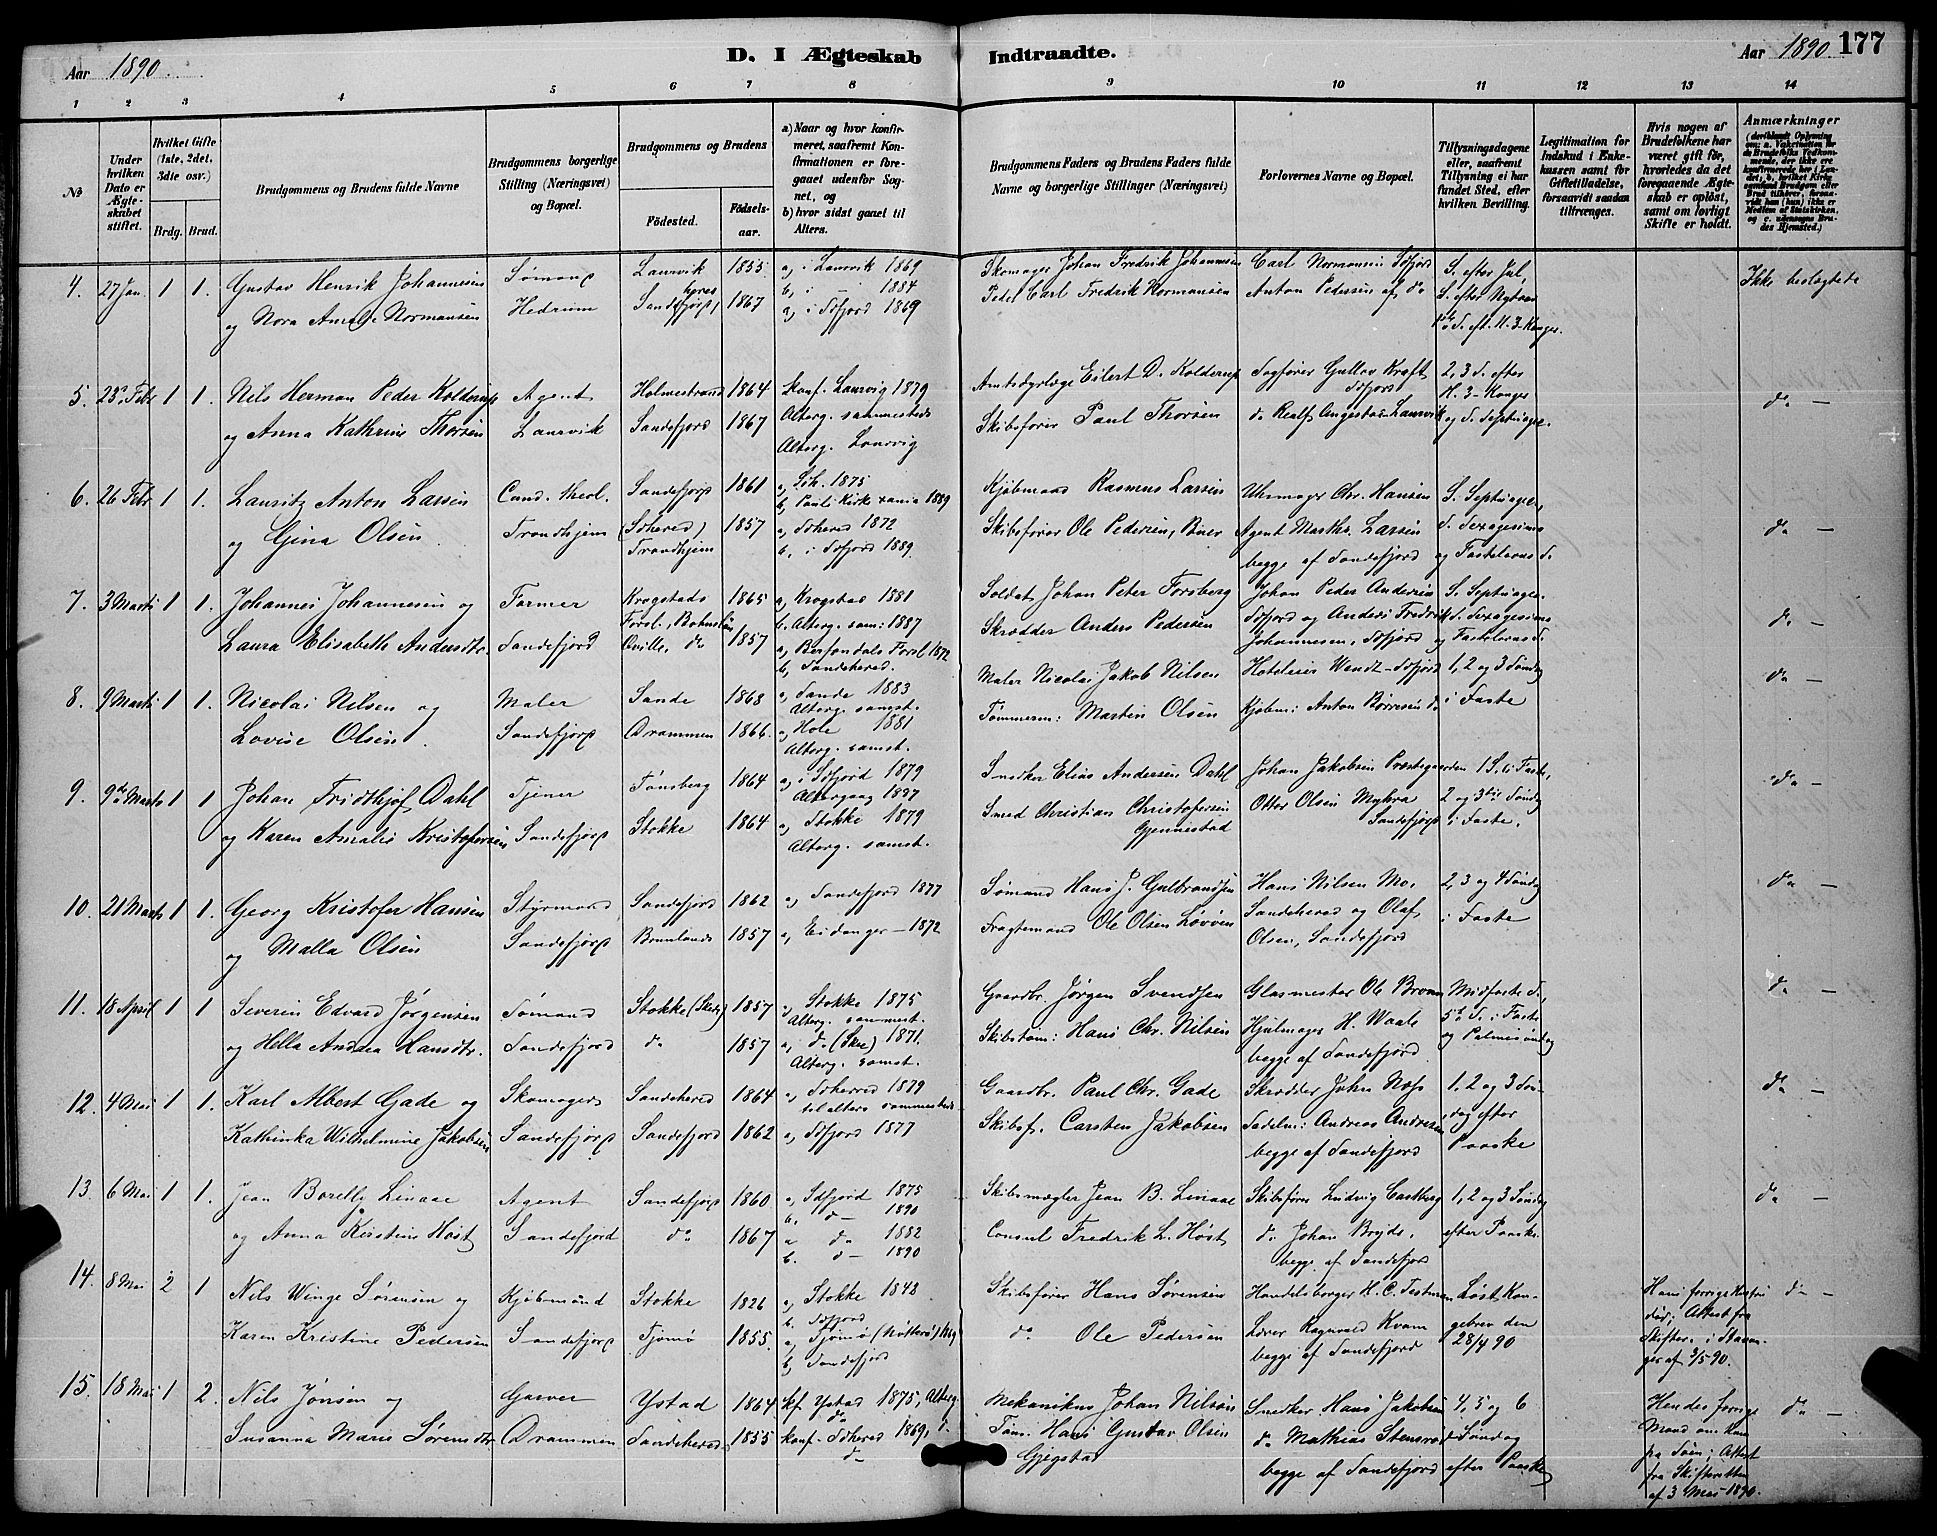 Aar 1890.
D. I Ægteskab
Indtraadte.
Aar 1890.
177
1 2 3 4 5 6 7 8 9 10 11 12 13 14
No
Under hvilken Dato er Ægteskabet stiftet.
Hvilket Gifte (1ste, 2det, 3die osv.)
Brdg. Brud.
Brudgommens og Brudens fulde Navne
Brudgommens borgerlige Stilling (Næringsvei) og Bopæl.
Brudgommens og Brudens
Födested.
Födselsaar.
a) Naar og hvor konfirmeret, saafremt Konfirmationen er foregaaet udenfor Sognet, og
b) hvor sidst gaaet til Alters.
Brudgommens Faders og Brudens Faders fulde Navne og borgerlige Stillinger (Næringsvei)
Forlovernes Navne og Bopæl.
Tillysningsdagene eller, saafremt Tillysning ei har fundet Sted, efter hvilken Bevilling.
Legitimation for Indskud i Enkekassen samt for Giftetilladelse, forsaavidt saadan tiltrænges.
Hvis nogen af Brudefolkene har været gift för, hvorledes da det foregaaende Ægteskab er oplöst, samt om lovligt Skifte er holdt.
Anmærkninger
4. 27 Jan. 1 1. Gustav Henrik Johannesen Sømand Laurvik 1855 a, i Laurvik 1869 Skomager Johan Fredrik Johannesen Carl Normansen Sdfjord S. efter Jul Ikke beslægtede
og Nora Amalie Normansen Hedrum Sandefjord 1867 b, i 1884 Pedel Carl Fredrik Normansen Anton Pedersen af do S. efter Nytaar
a, i Sdfjord 1869
5. 23 Febr 1 1. Nils Herman Peder Kolderup Agent Holmestrand 1864 konf. Laurvig 1879 Amtsdyrlæge Eilert D. Kolderup Sagfører Gullov Kraft 2, 3 S. efter do —
Sdfjord H. 3 Konger
og Anna Kathrine Thorsen Laurvik Sandefjord 1867 Alterg. sammesteds Skibsfører Paul Thorsen do Realf Laurvik og S. Septuages.
Alterg. Laurvig
6. 26 Febr 1 1. Lauritz Anton Larsen Cand. theol. Sandefjord 1861 a, Sdh. 1875 Kjøbmand Rasmus Larsen Uhrmager Chr. Hansen S. Septuages. do —
b, Pauls Kirke xania 1889
og Gina Olsen Trondhjem (Sdherred) 1857 a, Sdherred 1872 Skibsfører Ole Pedersen, Agent Marths. Larsen S. Sexagesima
Trondhjem b, i Sdfjord 1889. begge af Sandefjord og Fastelavns S.
7. 3 Marts 1 1. Johannes Johannesen og Farmer Krogstads 1865 a, Krogstad 1881 Soldat Johan Peter Forsberg Johan Peder Andersen S. Septuages. do —
Forsl., Bohuslän b. Alterg. sam: 1887 Sdfjord og Anders Fredrik S. Sexagesima
Laura Elisabeth Andersdtr. Sandefjord Qville, do 1857 a, Forsl 1872 Skrædder Anders Pedersen Johannesen, Sdfjord og Fastelavns S.
b, Sandeherred.
8. 9 Marts 1 1. Nicolai Nilsen og Maler Sande 1868 a, Sande 1883 Maler Nicolai Jakob Nilsen Hoteleier Wendt - Sdfjord 1, 2 og 3 Søndag do —
Alterg. samst.
Lovise Olsen Sandefjord Drammen 1866. a, Hole 1881 Tømmerm: Martin Olsen Kjøbm: Anton Børresen do i Faste
Alterg. samst.
9. 9de Marts 1 1 Johan Fridthjof Dahl Tjener Tønsberg 1864 a, i Sdfjord 1879 Snedker Elias Andersen Dahl Johan Jakobsen Præstegaarden 1 S. i Faste, do —
Altergang 1887
og Karen Amalie Kristofersen Sandefjord Stokke 1864 a, Stokke 1879 Smed Christian Christofersen Otter Olsen Myhra 2 og 3die Søndag
Alterg. samst. Gjennestad Sandefjord i Faste.
10. 21 Marts 1 1. Georg Kristofer Hansen Styrmand Sandefjord 1862 a, Sandefjord 1877 Sømand Hans J. Gulbrandsen Hans Nilsen Mo. 2, 3 og 4 Søndag do —
og Malla Olsen Sandefjord Brunlanæs 1857 a, Eidanger — 1872 Fragtemand Ole Olsen Løvøen Sandeherred og Olaf i Faste
Olsen, Sandefjord
11. 18 April 1 1 Severin Edvard Jørgensen Sømand Stokke (Skee) 1857 a, Stokke 1875 Gaardbr. Jørgen Svendsen Glasmester Ole Bruun Midfaste S., do —
Alterg. sammest. 5te S. i Faste
og Hella Andrea Hansdtr. Sandefjord do 1857 a, do (Skee) 1871. Skibstøm: Hans Chr. Nilsen Hjulmager H. Waale og Palmesøndag
Alterg. samst. begge af Sandefjord
12. 4 Mai 1 1. Karl Albert Gade og Skomager Sandeherred 1864 a, Sdherred 1879 Gaardbr. Paul Chr. Gade Skrædder John Næss 1, 2 og 3 Søn- do —
til alters sammesteds dag efter
Kathinka Wilhelmine Jakobsen Sandefjord Sandefjord 1862 a, Sdfjord 1877 Skibsf. Carsten Jakobsen Sadelm: Andreas Andersen Paaske
begge af Sandefjord
13. 6 Mai 1 1. Jean Borelly Linaae Agent Sandefjord 1860 a, Sdfjord 1875 Skibsmægler Jean B. Linaae Skibsfører Ludvig Castberg 1, 2 og 3 Søndag do —
b. do — 1890
og Anna Kirstine Høst Sandefjord do 1867 a do 1882 Consul Fredrik L. Høst do Johan Bryde. efter Paaske
b. do — 1890 begge af Sandefjord
14. 8 Mai 2 1 Nils Winge Sørensen og Kjøbmand Stokke 1826 a, Stokke 1843 Skibsfører Hans Sørensen Handelsborger H. C. Testman Løst Kon- Hans forrige Hustru do —
b. Sdfjord død; Attest fra
Karen Kristine Pedersen Sandefjord Tjømø 1855. a, Tjømø (Nøtterø) 1869 do Ole Pedersen Lærer Ragnvald Kvam gebrev den Skifter. i Stavan-
b, Sandefjord begge af Sandefjord 28/4 90 ger af 3/5 90.
15. 18 Mai 1 2. Nils Jønsen og Garver Ystad 1864 kf. Ystad 1875, Alterg. Mekanikus Johan Nilsson Snedker Hans Jakobsen 4, 5 og 6 Hendes forrige do —
do Mand omkom
Susanna Marie Sørensdtr. Drammen Sandeherred 1855 konf. Sdherred 1869, Tøm. Hans Gustav Olsen do Mathias Stensrød Søndag paa Søen; Attest
do Gjegstad begge af Sandefjord efter Paaske fra Skifteretten
af 3 Mai 1890.